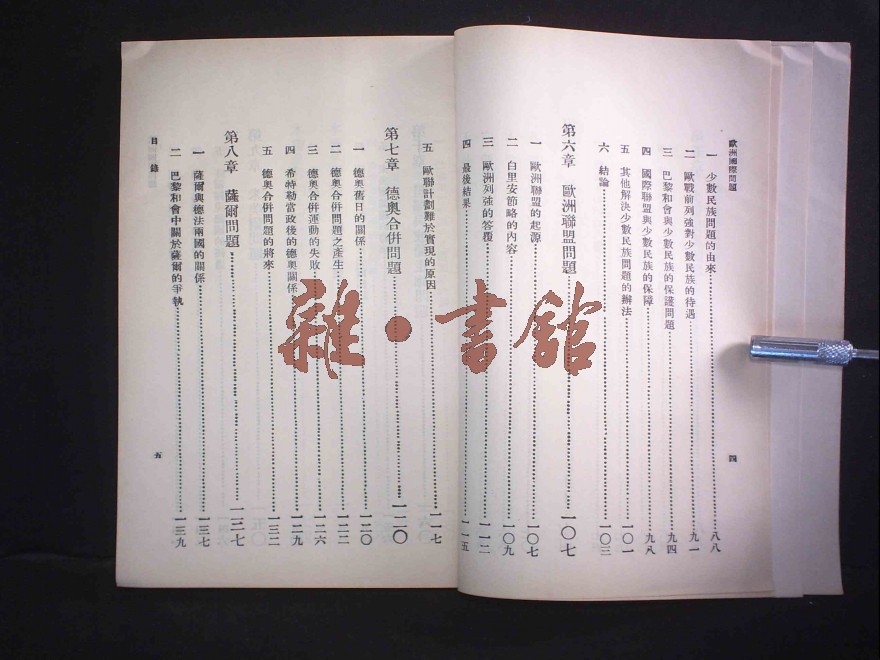 歐洲國際問題
一 少數民族問題的由來 八八
二 歐戰前列強對少數民族的待遇 九一
三 巴黎和會與少數民族的保護問題 九四
四 國際聯盟與少數民族的保障 九八
五 其他解決少數民族問題的辦法 一〇一
六 結論 一〇三
第六章 歐洲聯盟問題 一〇七
一 歐洲聯盟的起源 一〇七
二 白里安節略的內容 一〇九
三 歐洲列強的答覆 一一二
四 最後結果 一一五
四
五 歐聯計劃難於實現的原因 一一七
第七章 德奧合併問題 一二〇
一 德奧舊日的關係 一二〇
二 德奧合併問題之產生 一二二
三 德奧合併運動的失敗 一二六
四 希特勒當政後的德奧關係 一二九
五 德奧合併問題的將來 一三二
第八章 薩爾問題 一三七
一 薩爾與德法兩國的關係 一三七
二 巴黎和會中關於薩爾的爭執 一三九
目錄
五
雜·書館